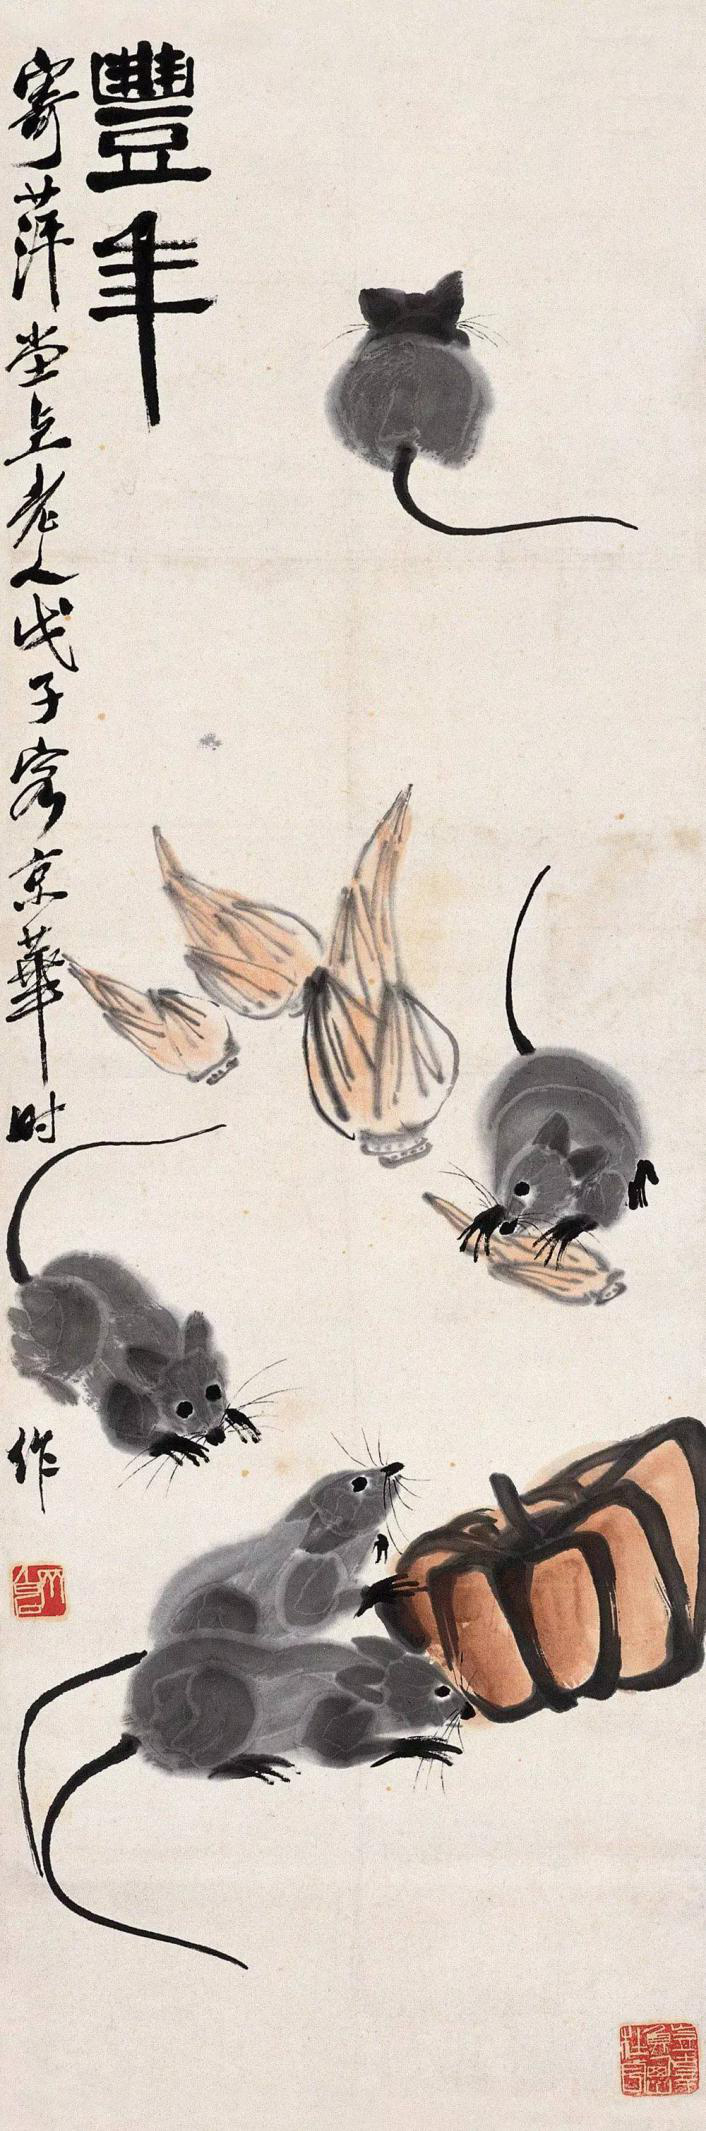 豐年
寄萍堂上老人戊子客京華时作
白石